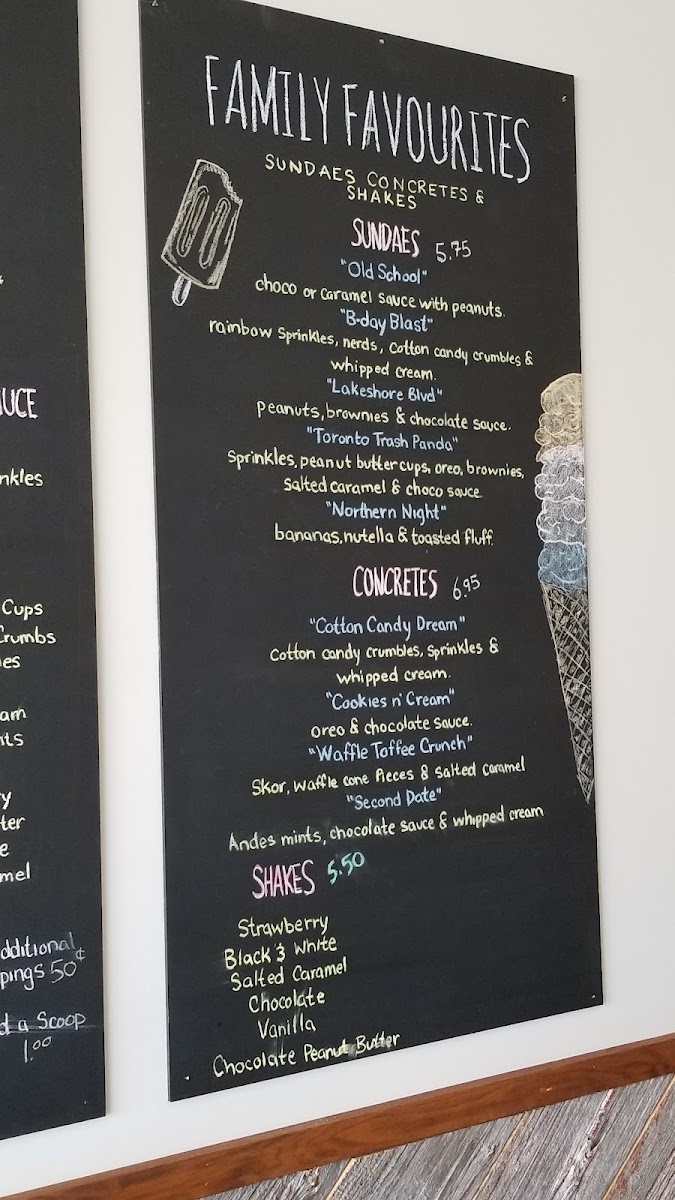 UCE
nkles
Cups
Crumbs
es
am
ts
y
ter
e
mel
dditional
pings 50¢
d a Scoop
1.00
FAMILY FAVOURITES
SUNDAES CONCRETES &
SHAKES
SUNDAES 5.75
"Old School"
choco or caramel sauce with peanuts.
"B-day Blast"
rainbow sprinkles, nerds, cotton candy crumbles &
whipped cream.
"Lakeshore Blvd"
peanuts, brownies & chocolate sauce.
"Toronto Trash Panda"
Sprinkles, peanut butter cups, oreo, brownies,
salted caramel & choco sauce.
"Northern Night"
bananas, nutella & toasted fluff.
CONCRETES 6.95
"Cotton Candy Dream"
Cotton candy crumbles, sprinkles &
whipped cream.
"Cookies n' Cream"
oreo & chocolate sauce.
"Waffle Toffee Crunch"
Skor, waffle cone Pieces & salted caramel
"Second Date"
Andes mints, chocolate sauce & whipped cream
SHAKES 5.50
Strawberry
Black & White
Salted Caramel
Chocolate
Vanilla
Chocolate Peanut Butter